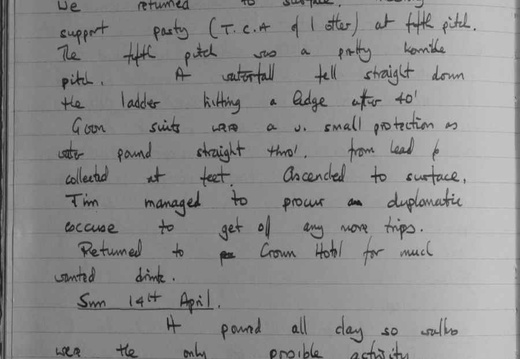 We returned to surface.
support party (T.C.A & 1 other) at fifth pitch.
The fifth pitch was a pretty horrible
pitch. A waterfall fell straight down
the ladder hitting a ledge after 40'
Goon suits were a v. small protection as
water pound straight thro'. from head &
collected at feet. Ascended to surface,
Tim managed to procur an duplomatic
excuse to get of any more trips.
Returned to Crown Hotel for much
wanted drink.
Sun 14th April.
It poured all day so walks
were the only possible activity